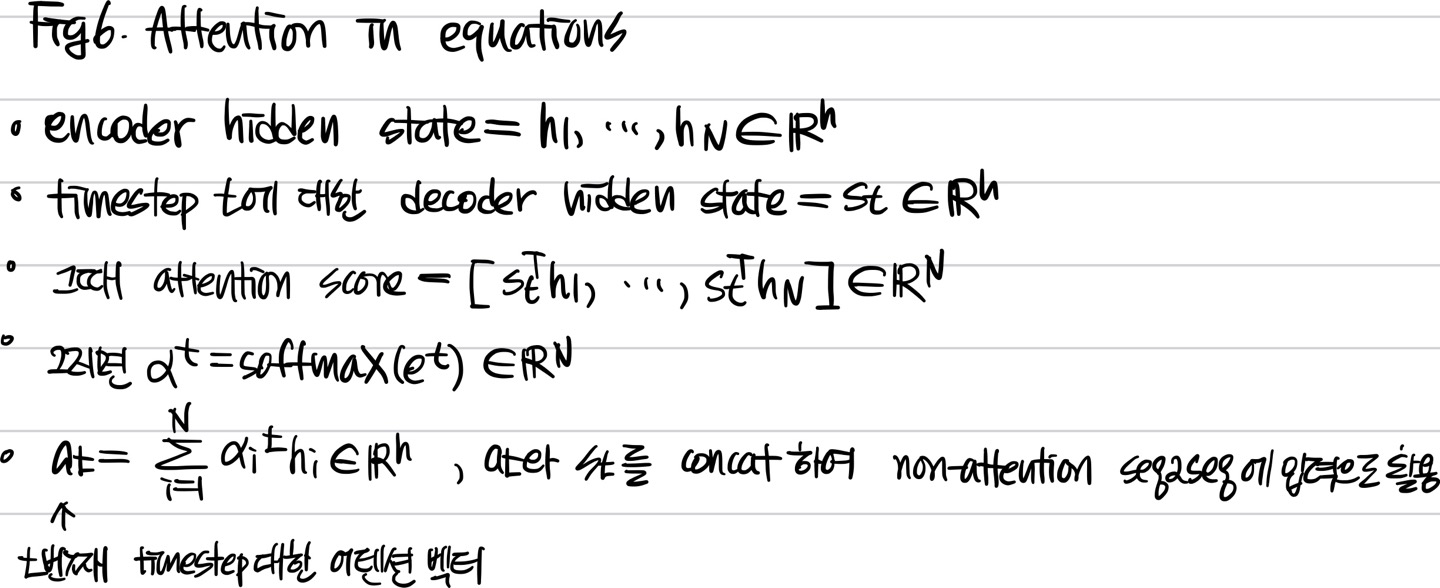 Fig6. Attention in equations
• encoder hidden state = h1, ..., hN ∈ ℝ^h
• timestep t에 대한 decoder hidden state = st ∈ ℝ^h
• 그때 attention score = [st^T h1, ..., st^T hN] ∈ ℝ^N
• 그러면 α^t = softmax(e^t) ∈ ℝ^N
• at = Σ_{i=1}^{N} αi^t hi ∈ ℝ^h , at와 st를 concat하여 non-attention seq2seq에 입력으로 활용
↑
t번째 timestep대한 어텐션 벡터